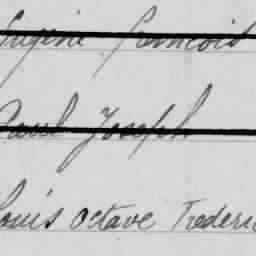 Eugène François
Paul Joseph
Louis Octave Frederic